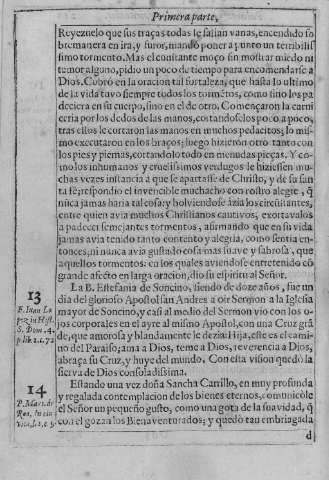 Primera parte,
Reyezuelo que sus traças todas le salian vanas, encendido so
bremanera en ira, y furor, mandò poner a punto un terribilis
simo tormento. Mas el constante moço sin mostrar miedo ni
temor alguno, pidio un poco de tiempo para encomendarse a
Dios. Cobrò en la oracion tal fortaleza, que hasta lo ultimo
de la vida tuvo siempre todos los tormẽtos, como si no los pa
deciera en su cuerpo, sino en el de otro. Començaron la carni
ceria por los dedos de las manos, cortandoselos poco a poco,
tras ellos le cortaron las manos en muchos pedacitos; lo mis
mo executaron en los braços; luego hizieron otro tanto con
los pies y piernas, cortandolo todo en menudas pieças. Y co-
mo los inhumanos y cruelissimos verdugos le hiziessen mu-
chas vezes instancia a que se apartasse de Christo, y de su san
ta fè; respondio el invencible muchacho con rostro alegre, q̃
nũca jamas haria tal cosa: y bolviendose àzia los circũstantes,
entre quien avia muchos Christianos cautivos, exortavalos
a padecer semejantes tormentos, afirmando que en su vida
jamas avia tenido tanto contento y alegria, como sentia en-
tonces; ni nunca avia gustado cosa mas suave y sabrosa, que
aquellos tormentos: en los quales aviendose entretenido cõ
grande afecto en larga oracion, dio su espiritu al Señor.
13
F. Iuan Lo
pez in Hist.
S. Dom. 4.
p. lib. 2. c. 72
La B. Estefania de Soncino, siendo de doze años, fue un
dia del glorioso Apostol san Andres a oir Sermon a la Iglesia
mayor de Soncino, y casi al medio del Sermon vio con los o-
jos corporales en el ayre al mismo Apostol, con una Cruz grã
de, que amorosa y blandamente le dezia: Hija, este es el cami
no del Paraiso; ama a Dios, teme a Dios, reverencia a Dios,
abraça su Cruz, y huye del mundo. Con esta vision quedò la
sierva de Dios consoladissima.
14
P. Mart. de
Roa, in ein
Estando una vez doña Sancha Carrillo, en muy profunda
y regalada contemplacion de los bienes eternos, comunicòle
el Señor un pequeño gusto, como una gota de la suavidad, q̃
con el gozan los Bienaventurados; y quedò tan embriagada
d